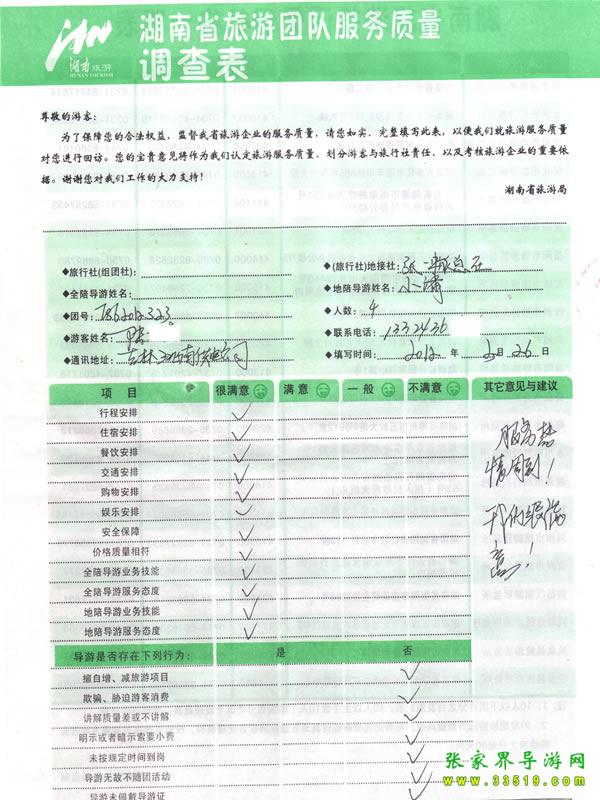 湖南旅游
HUNAN TOURISM
湖南省旅游团队服务质量
调查表
尊敬的游客：
为了保障您的合法权益，监督我省旅游企业的服务质量，请您如实、完整填写此表，以便我们就旅游服务质量
对您进行回访。您的宝贵意见将作为我们认定旅游服务质量、划分游客与旅行社责任、以及考核旅游企业的重要依
据。谢谢您对我们工作的大力支持！
湖南省旅游局
◆旅行社(组团社)：
◆(旅行社)地接社：
◆全陪导游姓名：
◆地陪导游姓名：小
◆团号：
◆人数：4
◆游客姓名：
◆联系电话：1332436
◆通讯地址：吉林
◆填写时间：2012 年 2 月 26 日
项 目 很满意 满 意 一 般 不满意 其它意见与建议
行程安排 ✓
住宿安排 ✓
餐饮安排 ✓
交通安排 ✓
购物安排 ✓
娱乐安排 ✓
安全保障 ✓
价格质量相符 ✓
全陪导游业务技能 ✓
全陪导游服务态度 ✓
地陪导游业务技能 ✓
地陪导游服务态度 ✓
服务热
情周到！
我们很满
意！
导游是否存在下列行为： 是 否
擅自增、减旅游项目 ✓
欺骗、胁迫游客消费 ✓
讲解质量差或不讲解 ✓
明示或者暗示索要小费 ✓
未按规定时间到岗 ✓
导游无故不随团活动 ✓
导游未佩戴导游证 ✓
张家界导游网
www.33519.com